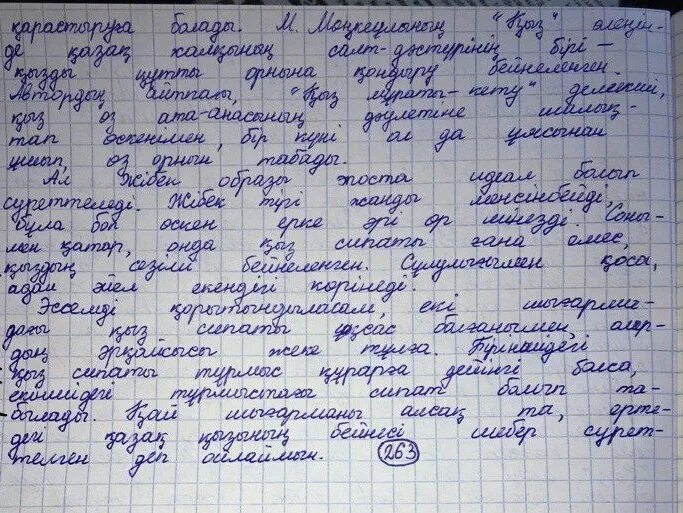 қарастыруға болады. М. Моңкеұлының "Қыз" өлеңін-
де қазақ халқының салт-дәстүрінің бірі –
қызды құтты орнына қондыру бейнеленген.
Автордың айтпағы, "Қыз мұраты - кету" демекші,
қыз өз ата-анасының дәулетіне шалық-
тап өскенімен, бір күні ол да ұясынан
ұшып, өз орнын табады.
Ал Жібек образы эпоста идеал болып
суреттеледі. Жібек тірі жанды менсінбейді,
бұла боп өскен ерке әрі өр мінезді. Соны-
мен қатар, онда қыз сипаты ғана емес,
қыздың сезімі бейнеленген. Сұлулығымен қоса,
адал әйел екендігі көрінеді.
Эссемді қорытындыласам, екі шығарма-
дағы қыз сипаты ұқсас болғанымен, олар-
дың әрқайсысы жеке тұлға. Біріншідегі
қыз сипаты тұрмыс құрарға дейінгі болса,
екіншідегі тұрмыстағы сипат болып та-
былады. Қай шығарманы алсақ та, ерте-
дегі қазақ қызының бейнесі шебер сурет-
телген деп ойлаймын. 263